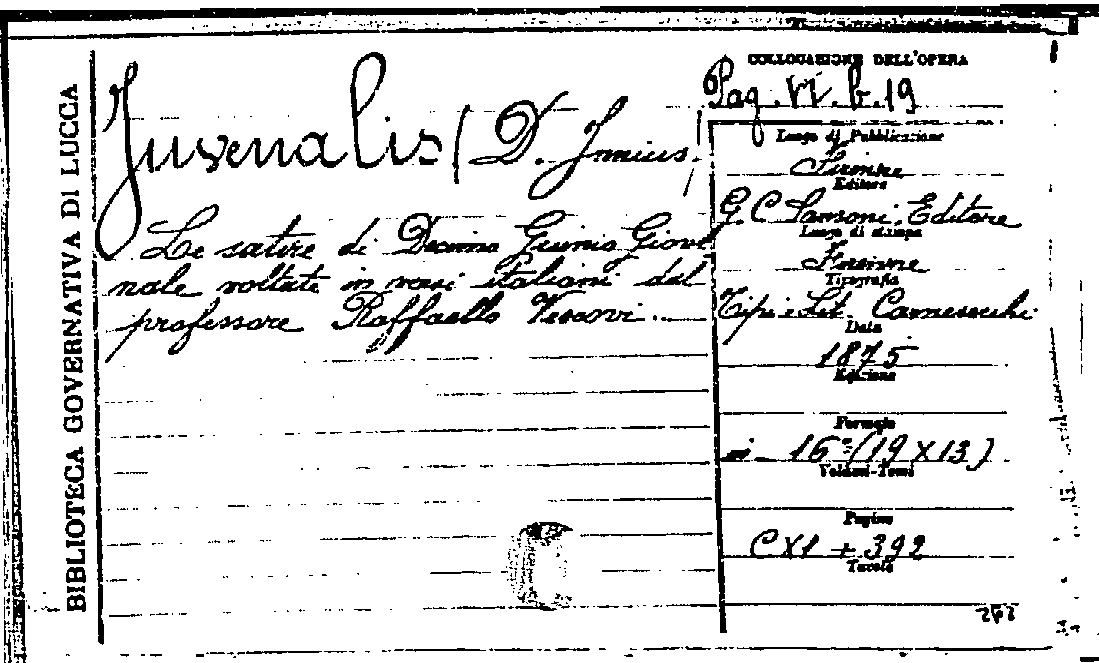 BIBLIOTECA GOVERNATIVA DI LUCCA
COLLOCAZIONE DELL'OPERA
Pag. VI. b. 19
Juvenalis / D. Junius.
Le satire di Decimo Giunio Giove
nale voltate in versi italiani dal
professore Raffaello Vescovi.
Luogo di Pubblicazione
Firenze
Editore
G. C Sansoni. Editore
Luogo di stampa
Firenze
Tipografia
Tipi e Lit. Carnesecchi
Data
1875
Edizione
Formato
in - 16° (19 X 13)
Volumi-Tomi
Pagine
CXI + 392
Tavole